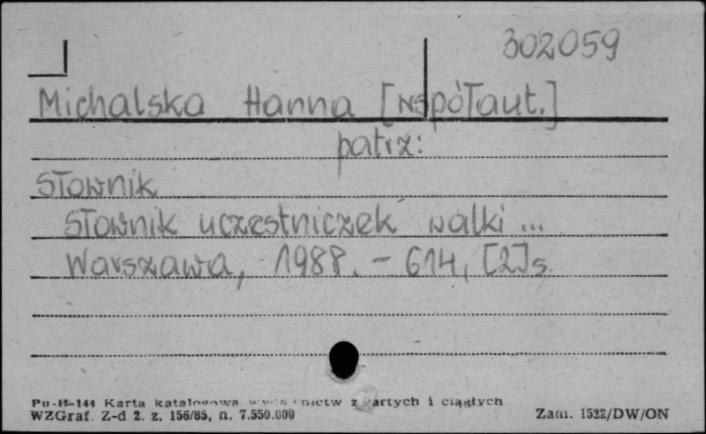 302059
Michalska Hanna [współaut.]
patrz:
Słownik
Słownik uczestniczek walki ...
Warszawa, 1988. – 614, [2] s.
Pu-B-144 Karta katalogowa wydawnictw zwartych i ciągłych
WZGraf. Z-d 2. z. 156/85, n. 7.550.000
Zam. 1522/DW/ON